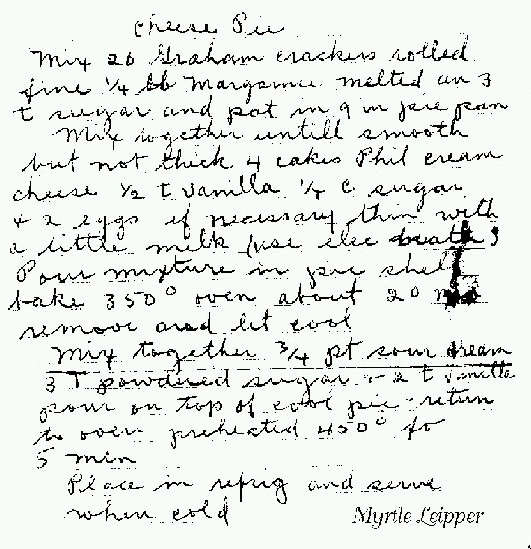 Cheese Pie
Mix 26 Graham crackers rolled
fine 1/4 lb Margarine melted an 3
t sugar and pat in 9 in pie pan
Mix together untill smooth
but not thick 4 cakes Phil cream
cheese 1/2 t vanilla 1/4 c sugar
+ 2 eggs if necessary thin with
a little milk (use elec beater)
Pour mixture in pie shell
bake 350° oven about 20
remove and let cool
Mix together 3/4 pt sour cream
3 T powdered sugar + 2 t vanilla
pour on top of cool pie return
to oven preheated 450° fo
5 min
Place in refrig and serve
when cold
Myrtle Leipper